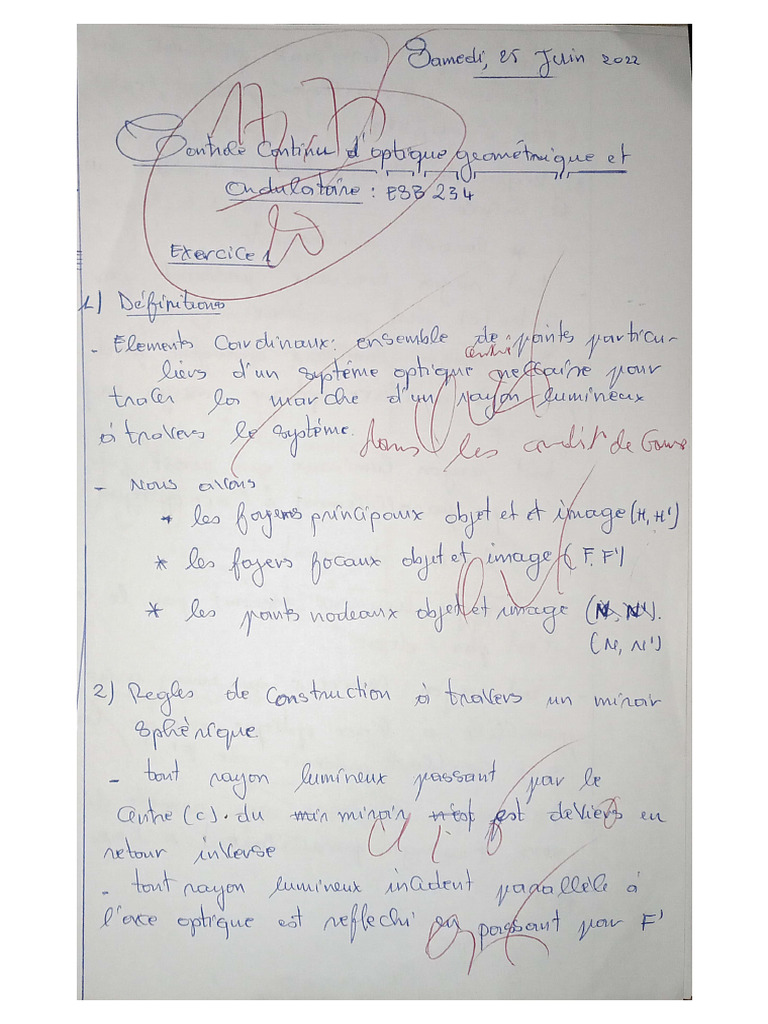 Samedi, 25 Juin 2022
Controle Continu d'optique geométrique et
Ondulatoire : ESB 234
Exercice 1
1) Définitions
- Elements Cardinaux: ensemble de points particu-
centré
liers d'un système optique necessaire pour
tracer la marche d'un rayon lumineux
à travers le système. dans les condit° de Gauss
- Nous avons
* les foyers principaux objet et et image (H, H')
* les foyers focaux objet et image (F, F')
* les points nodeaux objet et image (N, N').
(N, N')
2) Regles de Construction à travers un miroir
Sphèrique.
- tout rayon lumineux passant par le
Centre (c). du mir miroir n'est est deviers en
retour inverse
- tout rayon lumineux incident parallèle à
l'axe optique est reflechi en passant par F'